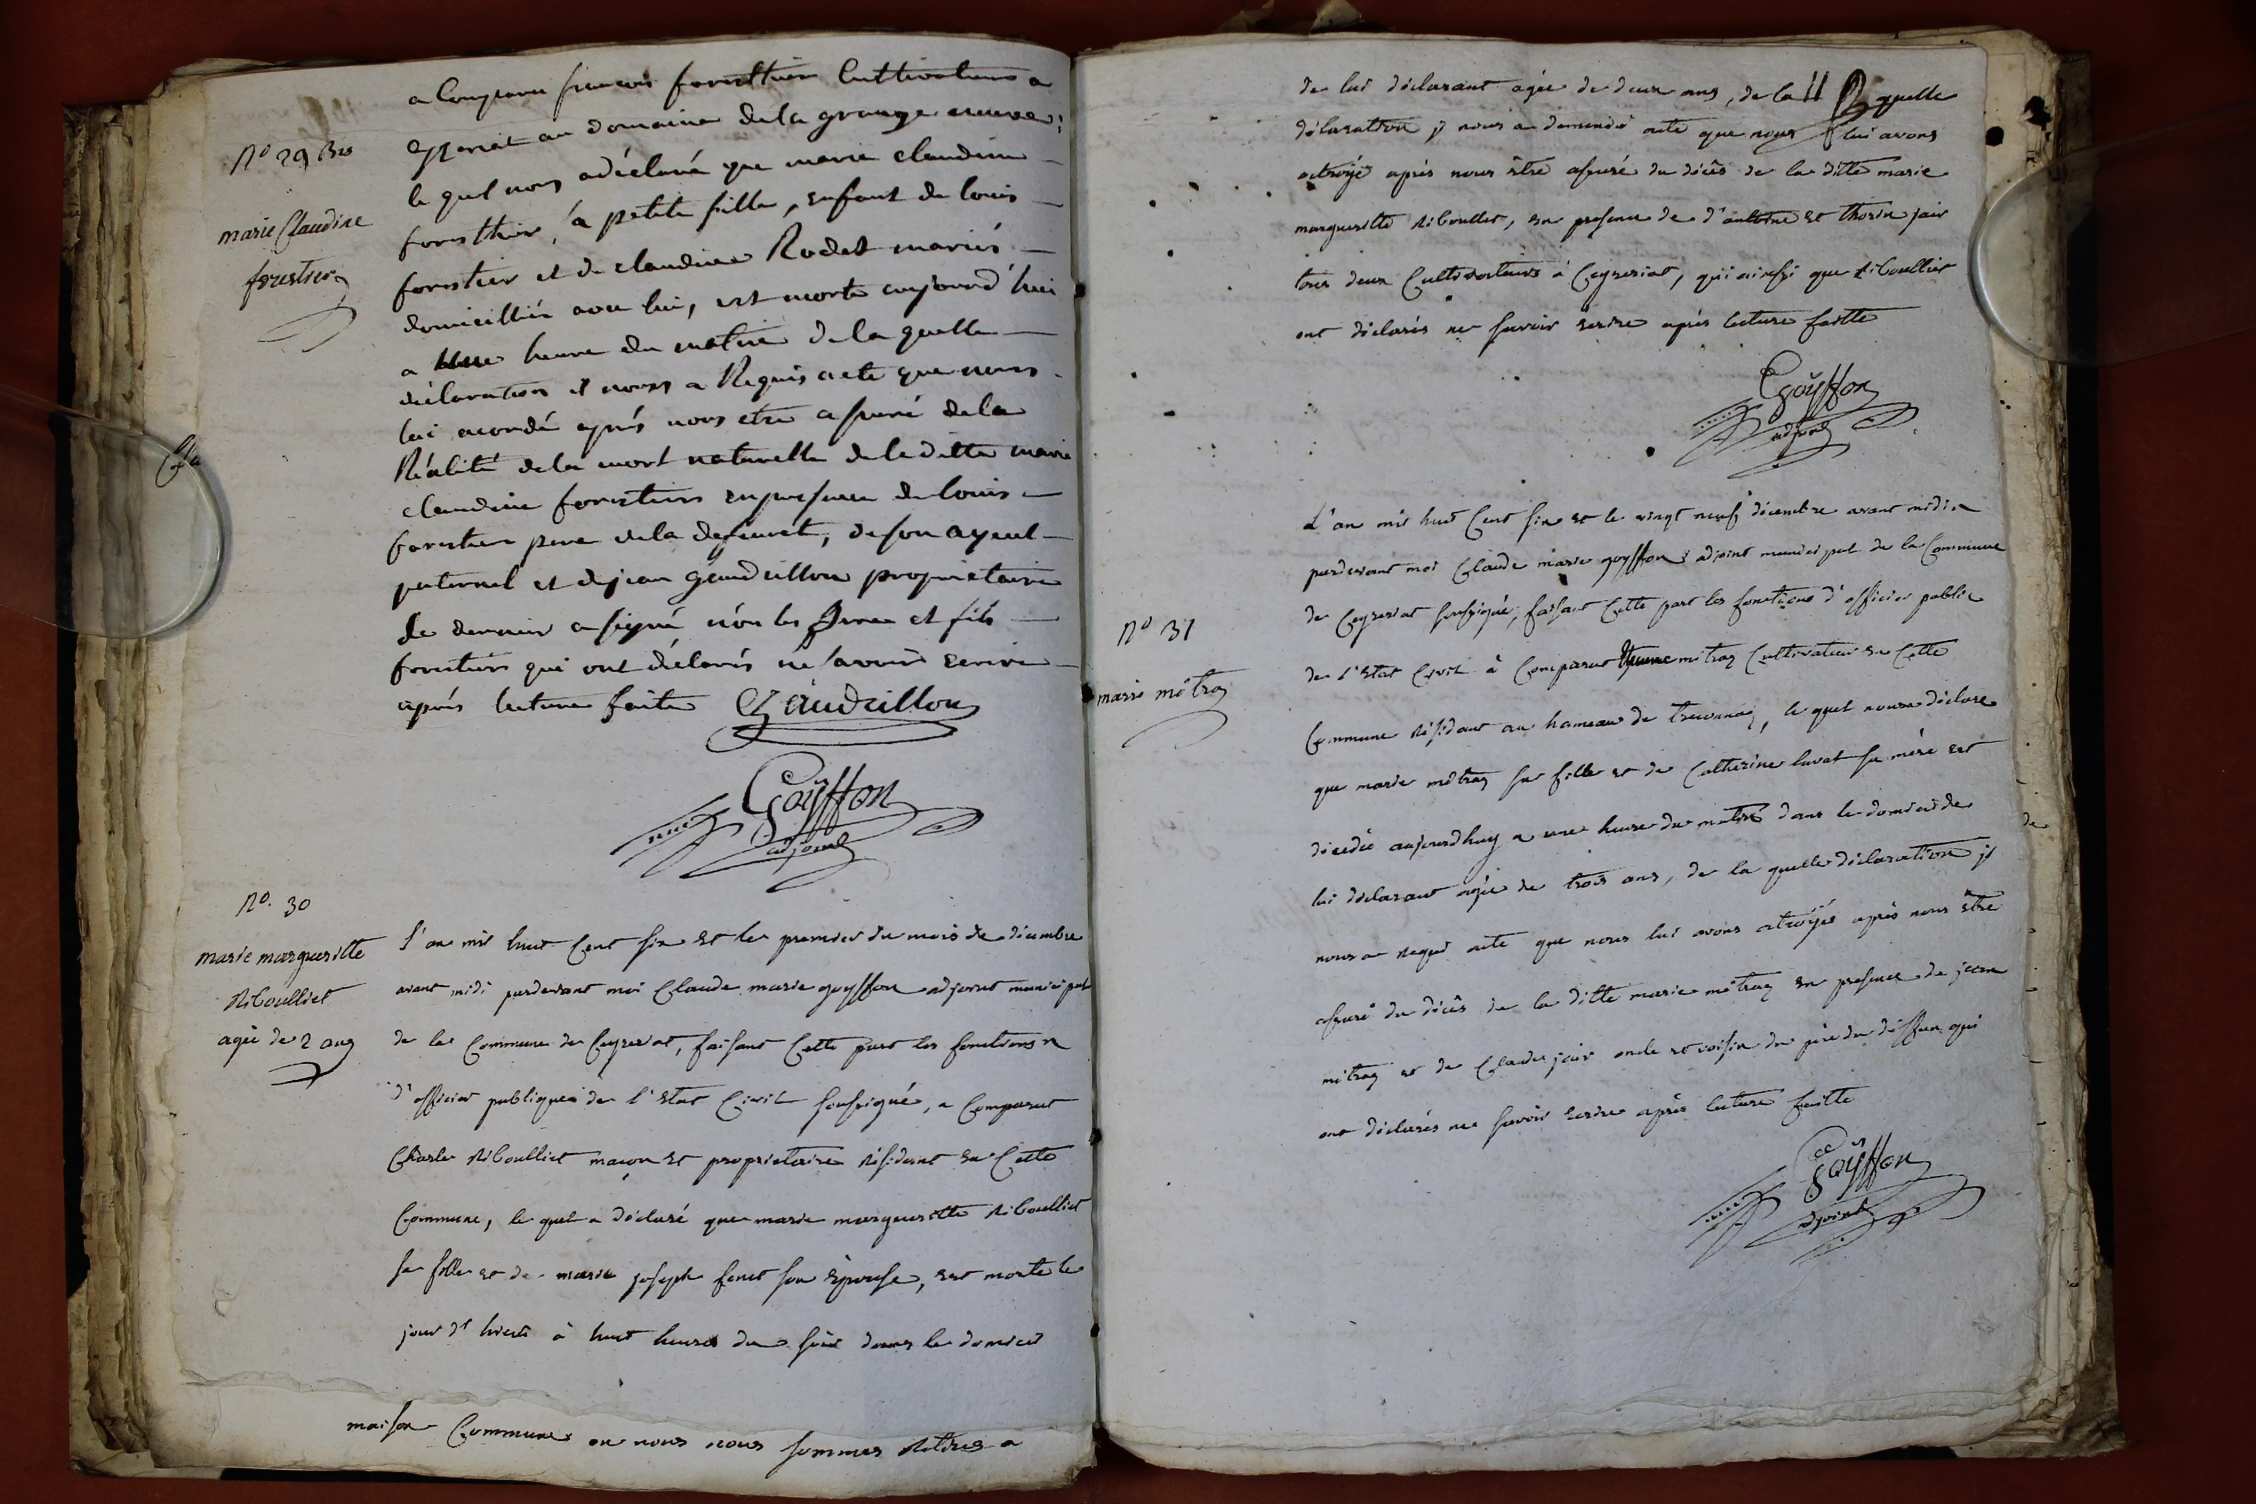 N° 29 Bis
marie Claudine
forestier
a Comparu francois foresttier Cultivateur a
Ceyzeriat au domaine dela grange neuve,
le quel nous adéclaré que marie claudine
foresthier, sa petite fille, enfant de louis
forestier et de claudine Rodet mariés
domicilliés avec lui, est morte aujourd'hui
a une heure du matin de la quelle
déclaration il nous a Requis acte que nous
lui acordé aprés nous etre assuré dela
Réalité dela mort naturelle de la ditte marie
claudine forestiers en presence de louis
forestier pere dela defunct, de son ayeul
paternel et de jean Gaudillon proprietaire
le dernier a signé non les pere et fils
forestiers qui ont déclarés ne savoir ecrire
aprés lecture faite Gaudillon
Goÿffon
adjoint
N°. 30
marie margueritte
Riboulliet
agée de 2 ans
L'an mil huit Cent six et le premier du mois de décembre
avant midi pardevant moi Claude marie goyffon adjoint municipal
de la Commune de Ceyzeriat, faisant Cette part les fonctions
d'officier publique de l'Etat Civil soussigné, a Comparut
Charle Riboulliet maçon et proprietaire Résident en Cette
Commune, le quel a déclaré que marie margueritte Riboulliet
sa fille et de marie joseph feret son épouse, est morte le
jour d'hier à huit heures du soir dans le domicil
maison Commune ou nous nous sommes Retirés a
de lui déclarant agée de deux ans, de la quelle
déclaration il nous a demandé acte que nous lui avons
octroyé aprés nous être assuré du décès de la ditte marie
margueritte Riboullet, en presence de d'antoine et thorin jair
tous deux Cultivateurs à Ceyzeriat, qui ainssi que Riboulliet
ont déclarés ne savoir ecrire aprés lecture faitte
Goÿffon
adjoint
N° 31
marie mêtraz
L'an mil huit Cent six et le vingt neuf décembre avant midi
pardevant moi Claude marie goyffon adjoint municipal de la Commune
de Ceyzeriat soussigné, faisant Cette part les fonctions d'officier public
de l'Etat Civil à Comparut mêtraz Cultivateur en Cette
Commune Résidant au hameau de, le quel nous a déclare
que marie mêtraz sa fille et de Catherine lavat sa mére est
décédée aujourdhuy a une heure du matin dans le domicil de
lui déclarant agée de trois ans, de la quelle déclaration il
nous a Requi acte que nous lui avons octroyés aprés nous être
assuré du décès de la ditte marie mêtraz en presence de jean
mêtraz et de Claude jair oncle et voisin du pére du deffun qui
ont déclarés ne savoir ecrire aprés lecture faitte
Goÿffon
adjoint
de